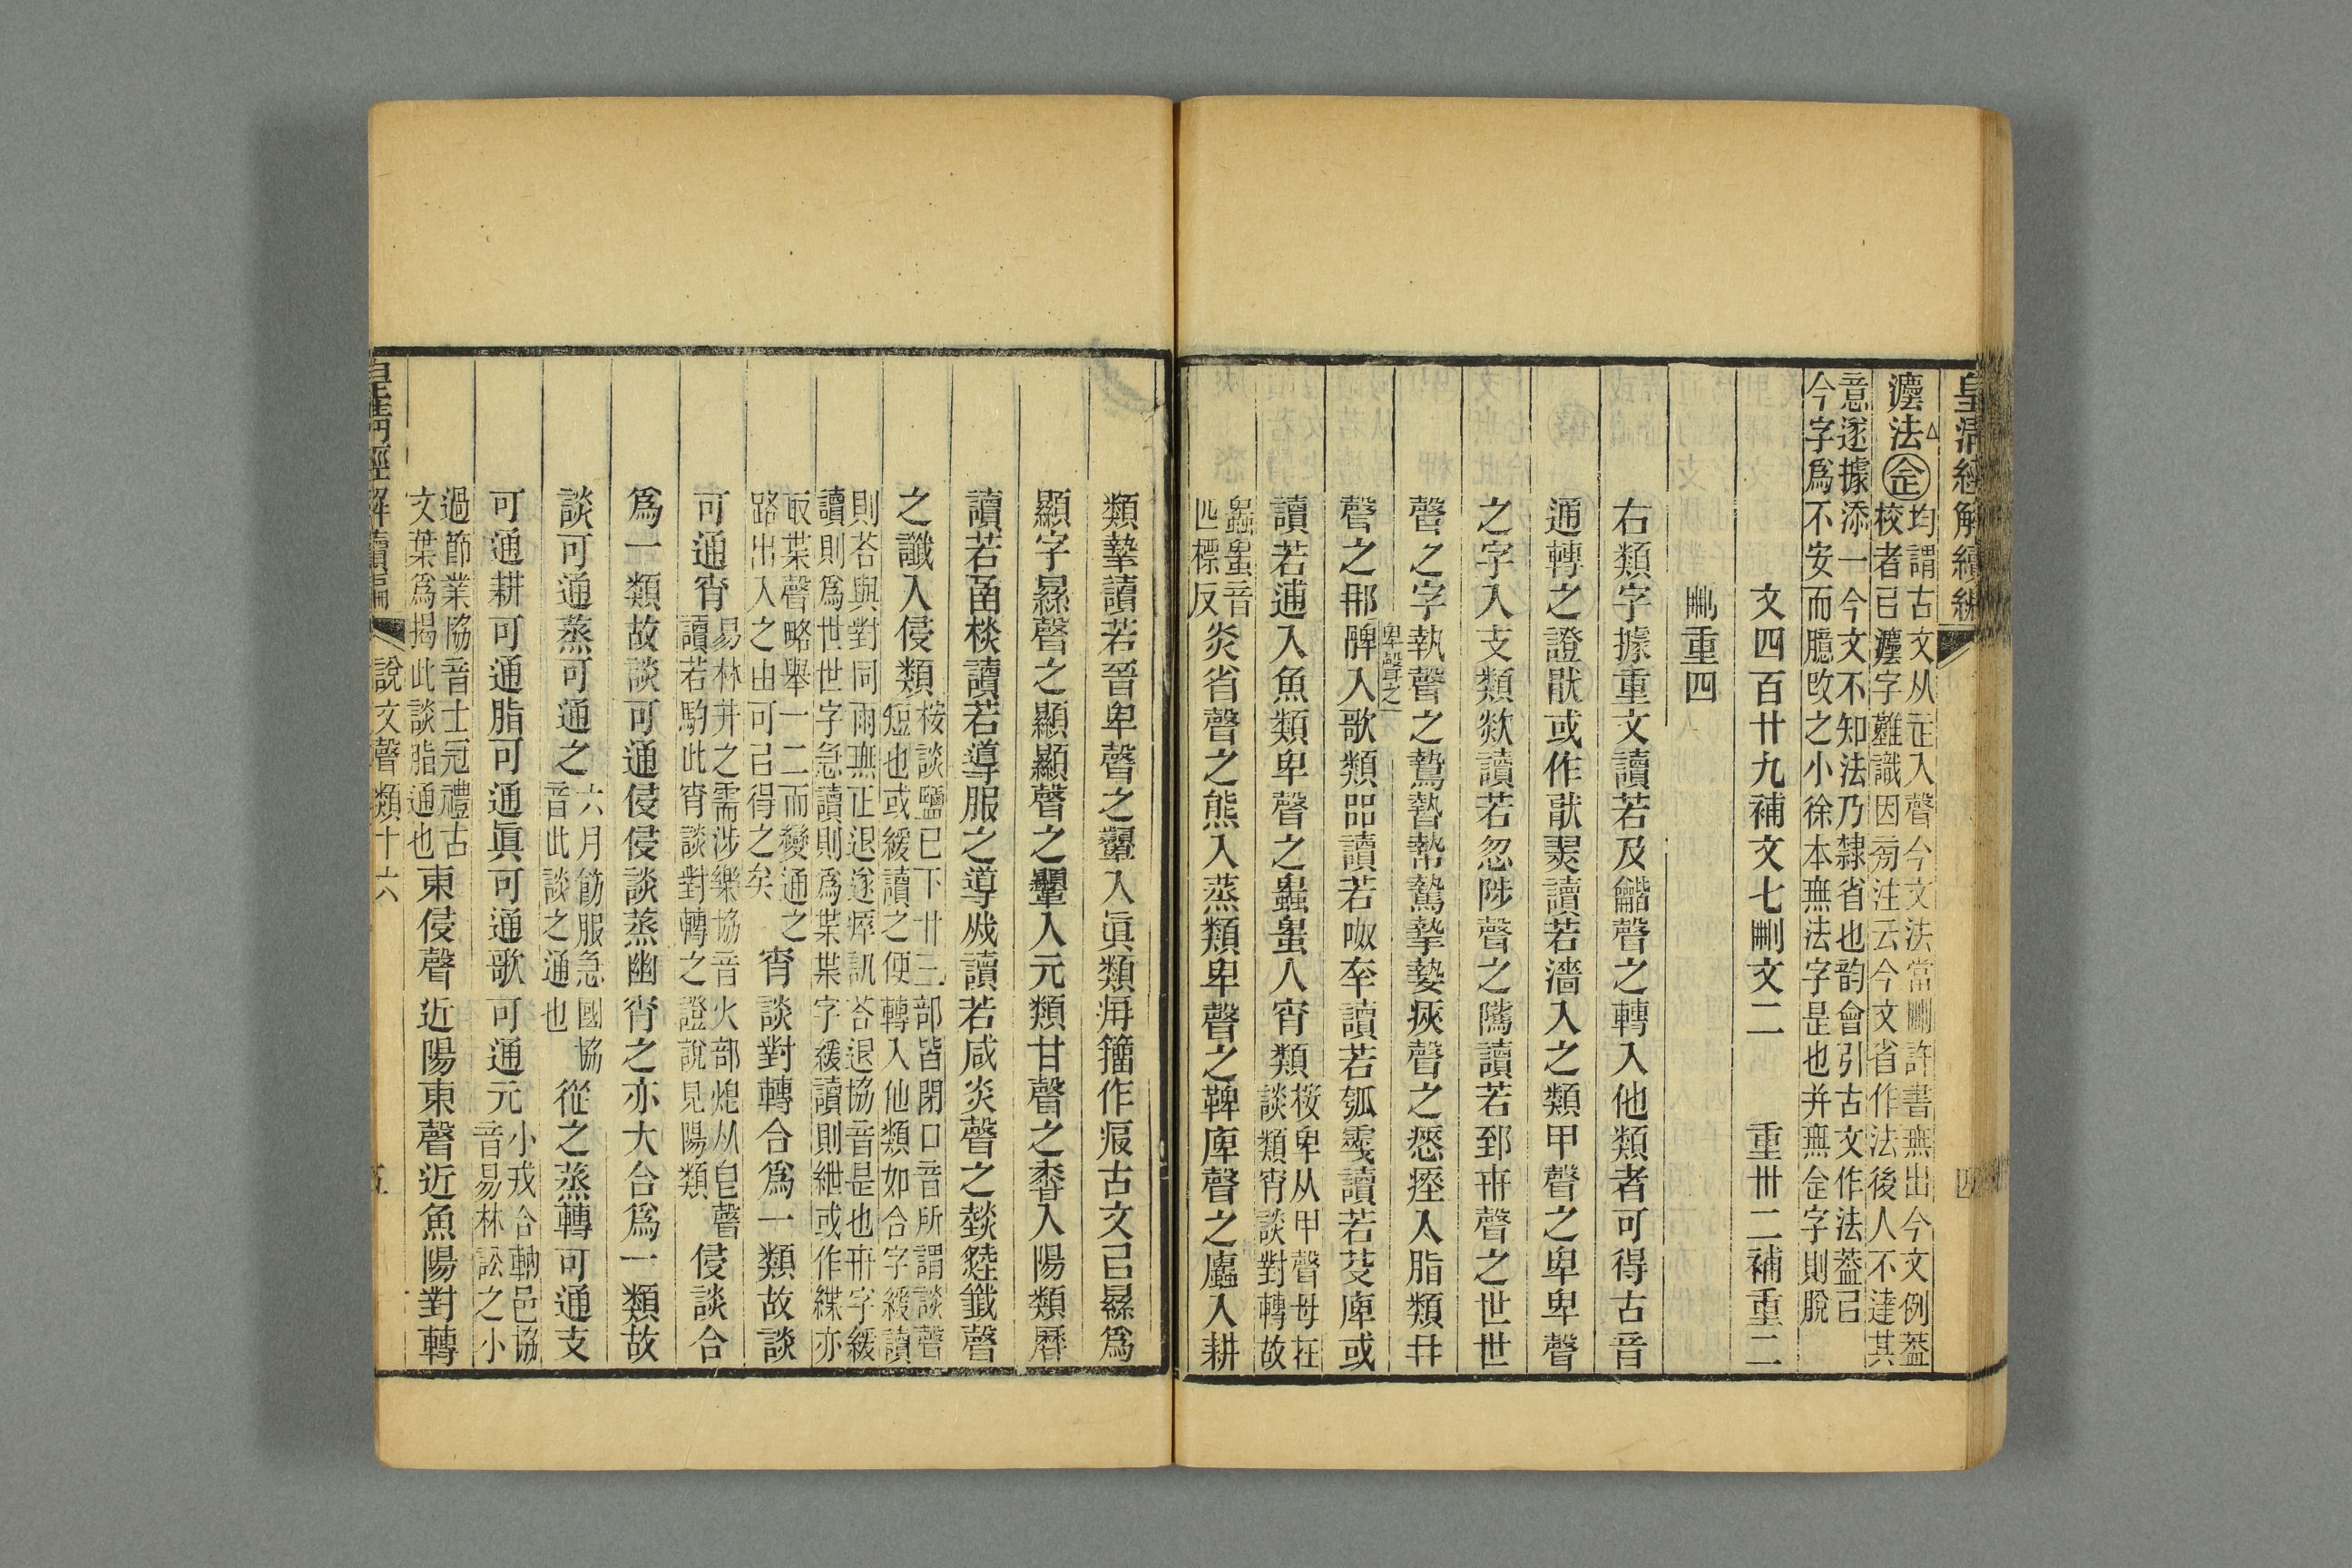 皇淸經解續編
四
灋法△㊣均謂古文从𠙺入聲今文法當刪許書無出今文例葢
校者已灋字難識因㫄注云今文省作法後人不達其
意遂據添一今文不知法乃隸省也韵會引古文作法葢已
今字爲不安而臆改之小徐本無法字是也并無字則脫
文四百廿九補文七刪文二　重卌二補重二
刪重四
右類字據重文讀若及龤聲之轉入他類者可得古音
通轉之證猒或作讀若濇入之類甲聲之卑卑聲
之字入支類欻讀若忽陟聲之讀若郅卋聲之世世
聲之字執聲之鷙贄騺摯𡠗㾜聲之瘱瘞入脂類冄
聲之那䏽入歌類㗊讀若呶㚔讀若瓠霎讀若芟庳或
卑聲之
讀若逋入魚類卑聲之入宵類
桉卑从甲聲母在
談類宵談對轉故
音
匹標反
炎省聲之熊入蒸類卑聲之鞞庳聲之入耕
類摯讀若晉卑聲之入眞類作古文已㬎爲
顯字㬎聲之顯顯聲之入元類甘聲之入陽類曆
讀若函棪讀若導服之導讀若咸炎聲之聲
之讖入侵類
桉談鹽已下廿三部皆閉口音所謂談聲
短也或緩讀之便轉入他類如合字緩讀
則荅與對同雨無正退遂瘁訊荅退協音是也卋字緩
讀則爲世世字急讀則爲枼枼字緩讀則紲或作緤亦
取枼聲略舉一二而變通之
路出入之由可已得之矣
宵談對轉合爲一類故談
可通宵
易林井之需涉樂協音火部煌从皀聲
讀若駒此宵談對轉之證說見陽類
侵談合
爲一類故談可通侵侵談蒸幽宵之亦大合爲一類故
談可通蒸可通之
六月飭服急國協
音此談之通也
從之蒸轉可通支
可通耕可通脂可通眞可通歌可通元
小戎合軜邑協
音易林訟之小
過節業協音士冠禮古
文葉爲揭此談脂通也
東侵聲近陽東聲近魚陽對轉
皇淸經解續編
說文聲類十六
五